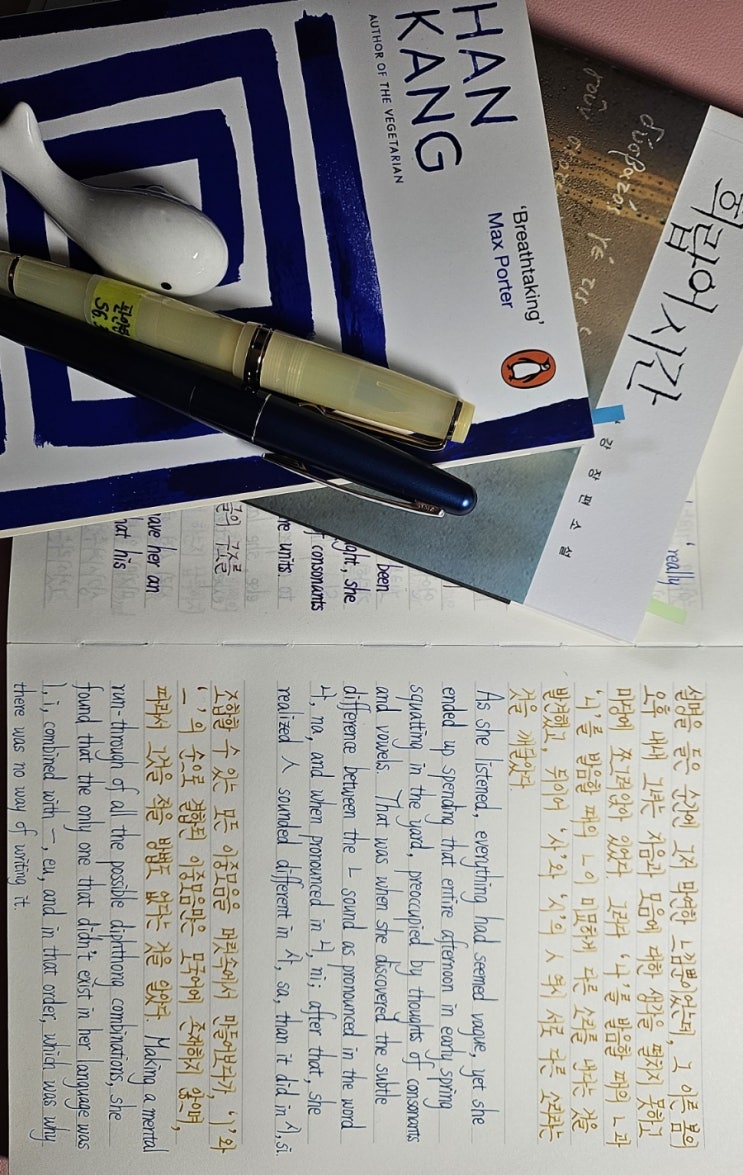 HAN
KANG
AUTHOR OF THE VEGETARIAN
'Breathtaking'
Max Porter
희랍어 시간
강 장편소설
'really
been
ght, she
consonants
re units.
글의 구조를
ave her an
hat his
설명을 들은 순간에 그저 막연한 느낌뿐이었는데, 그 이른 봄의
오후 내내 그녀는 자음과 모음에 대한 생각을 떨치지 못하고
마당에 쪼그려앉아 있었다. 그러다 '나'를 발음할 때의 ㄴ과
'니'를 발음할 때의 ㄴ이 미묘하게 다른 소리를 낸다는 것을
발견했고, 뒤이어 '사'와 '시'의 ㅅ 역시 서로 다른 소리라는
것을 깨달았다.
As she listened, everything had seemed vague, yet she
ended up spending that entire afternoon in early spring
squatting in the yard, preoccupied by thoughts of consonants
and vowels. That was when she discovered the subtle
difference between the ㄴ sound as pronounced in the word
나, na, and when pronounced in 니, ni; after that, she
realized ㅅ sounded different in 사, sa, than it did in 시, si.
조합할 수 있는 모든 이중모음을 머릿속에서 만들어보다가, 'ㅣ'와
'ㅡ'의 순으로 결합된 이중모음만은 모국어에 존재하지 않으며,
따라서 그것을 적을 방법도 없다는 것을 알았다. Making a mental
run-through of all the possible diphthong combinations, she
found that the only one that didn't exist in her language was
ㅣ, i, combined with ㅡ, eu, and in that order, which was why
there was no way of writing it.